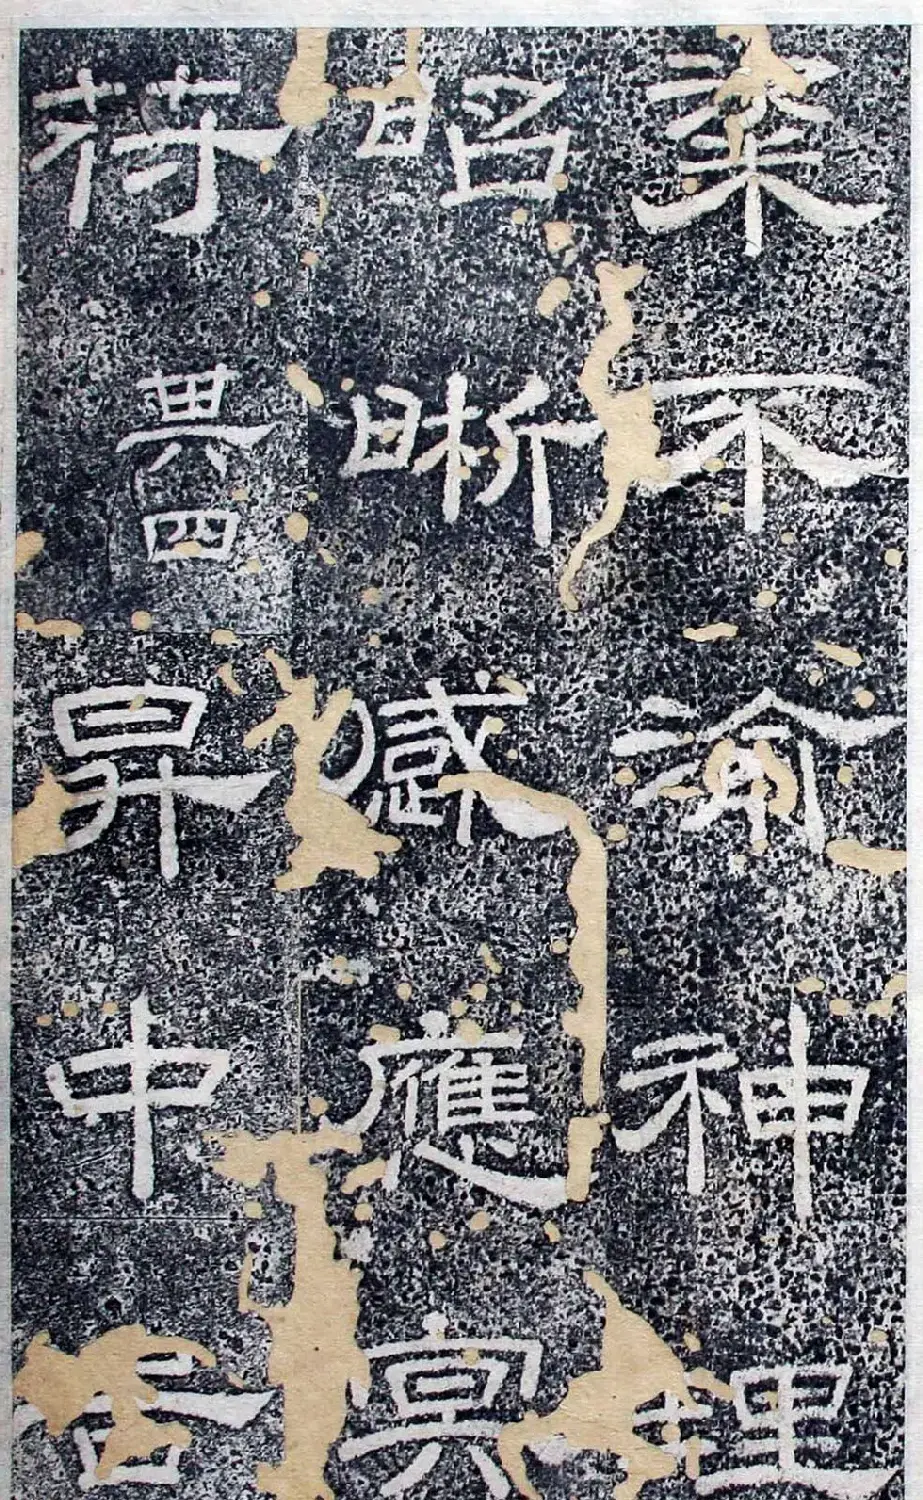 不渝神理
昭晰感應冥
符其四昇中告